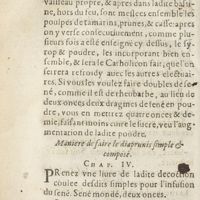 vaisseau propre, & apres dans ladite bassine,
hors du feu, sont meslees ensemble les
poulpes de tamarins, prunes, & casse: apres
on y verse consecutiuement, comme plusieurs
fois a esté enseigné cy dessus, le syrop
& poudre, les incorporant bien ensemble,
& sera le Catholicon fait, que l'on
serrera refroidy auec les autres electuaires.
Si vous les voulez faire doubles de sené,
comme il est de rheubarbe, au lieu de
deux onces deux dragmes de sené en poudre,
vous en mettrez quatre onces & demie,
faisant moins cuire le sucre, veu l'augmentation
de ladite poudre.
Maniere de faire le diaprunis simple &
composé.
CHAP. IV.
PRenez vne liure de ladite decoction
coulee desdits simples pour l'infusion
du sené. Sené mondé, deux onces.